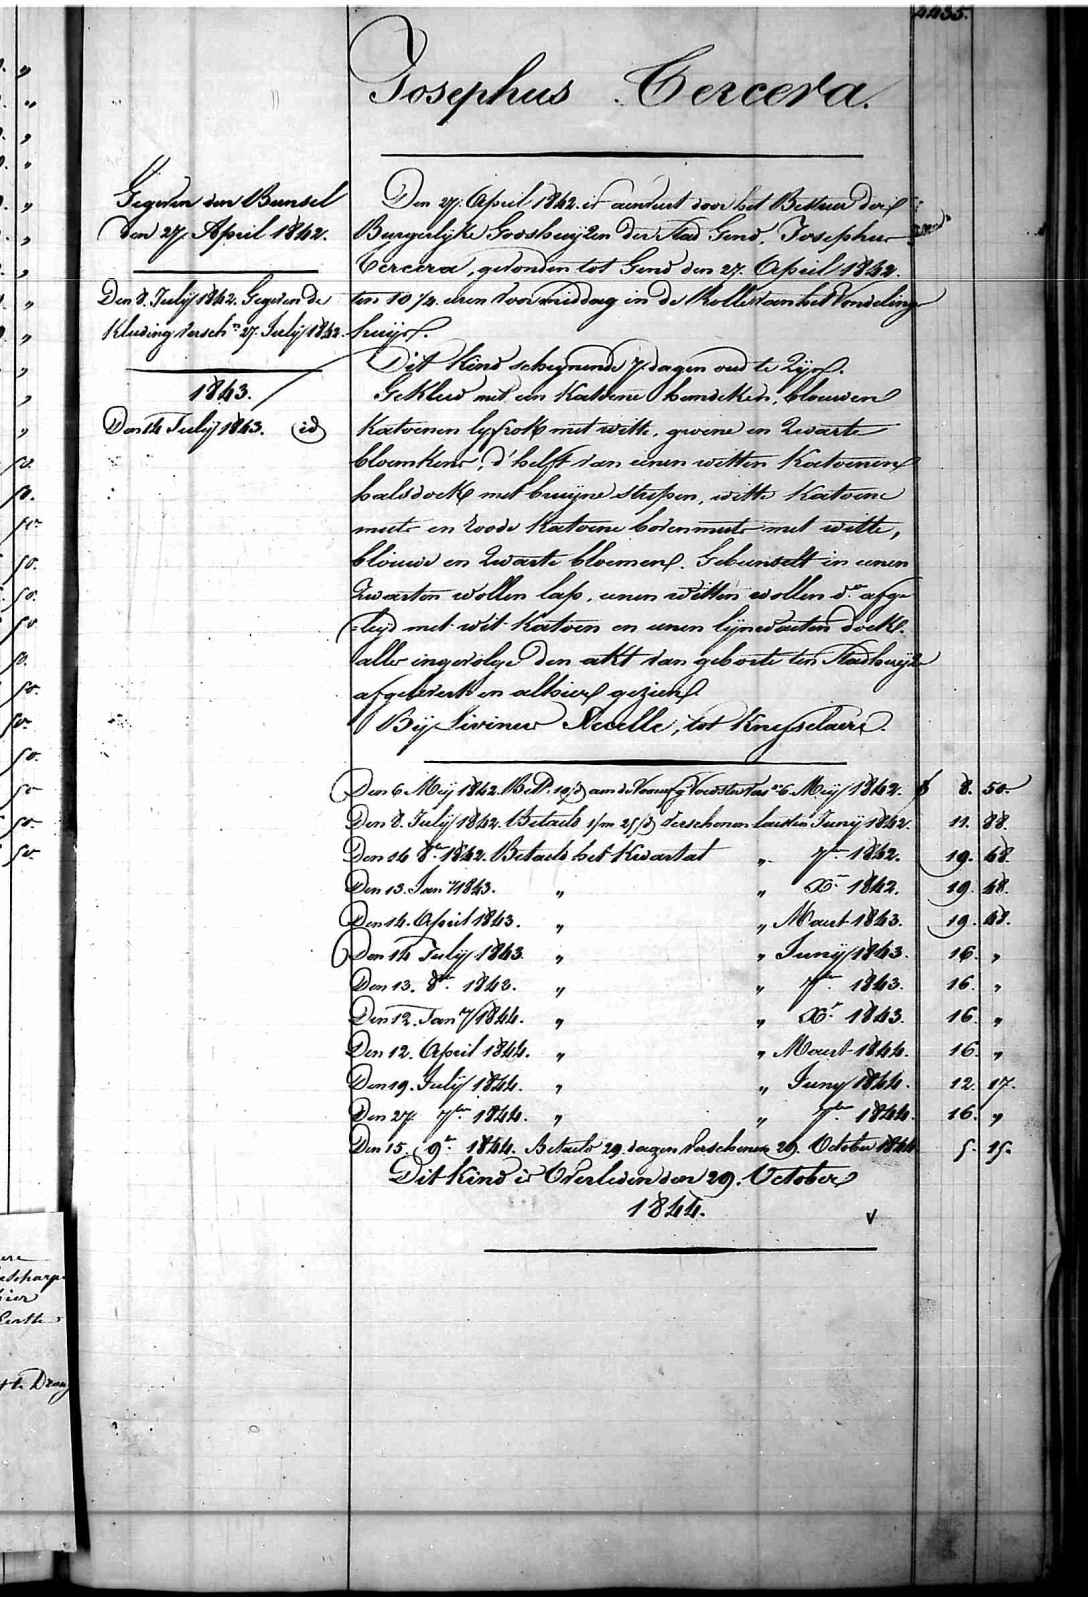 4435.
Josephus Cercera.
Gegeven den Bunsel
den 27. April 1842.
Den 8. Julij 1842. Gegeven de
Kleeding versch.n 27. Julij 1842.
1843.
Den 14 Julij 1843. id
Den 27. April 1842. is aenveert door het Bestuer der
Burgerlijke Godshuijzen der Stad Gend, Josephus
Cercera, gevonden tot Gend den 27. April 1842.
ten 10 1/2 uren voormiddag in de Rolle van het Vondeling
huijs.
Dit Kind schynende 7 dagen oud te Zijn.
Gekleed met een Katoene hemdeken, blouwen
Katoenen lyfrok met witte, groene en Zwarte
bloemkens, d'helft van eenen witten Katoenen
halsdoek met bruijne strepen, witte Katoene
muts en roode Katoene bovenmuts met witte,
blouwe en Zwarte bloemen. Gebunselt in eenen
Zwarten wollen lap, eenen witten wollen d.en afge
leyd met wit Katoen en eenen lynwaeten doek.
alles ingevolge den akt van geboorte ten Stadhuijze
afgeleverd en alhier gezien.
Bij Livinus Neselle, tot Knesselaere.
Den 6 Meij 1842. Bet. 10/d aen de Voedster Vers.n 6 Meij 1842. f 8. 50
Den 8. Julij 1842. Betaeld 1/m 25/d verschenen lactsten Junij 1842. 11. 88.
Den 14 8.er 1842. Betaeld het Kwartal " 7.er 1842. 19. 48.
Den 13. Jan.y 1843. " " X.r 1842. 19. 48.
Den 14. April 1843. " " Maert 1843. 19. 48.
Den 14 Julij 1843 " " Junij 1843. 16. "
Den 13. 8.er 1843. " " 7.er 1843. 16. "
Den 12. Jan.y 1844. " " X.r 1843. 16. "
Den 12. April 1844. " " Maert 1844. 16. "
Den 19. Julij 1844. " " Juny 1844. 12. 17.
Den 27. 7.er 1844. " " 7.er 1844. 16. "
Den 15. 9.r 1844. Betaeld 29. dagen verschenen 29. October 1844 5. 15.
Dit Kind is Overleden den 29. October
1844. v